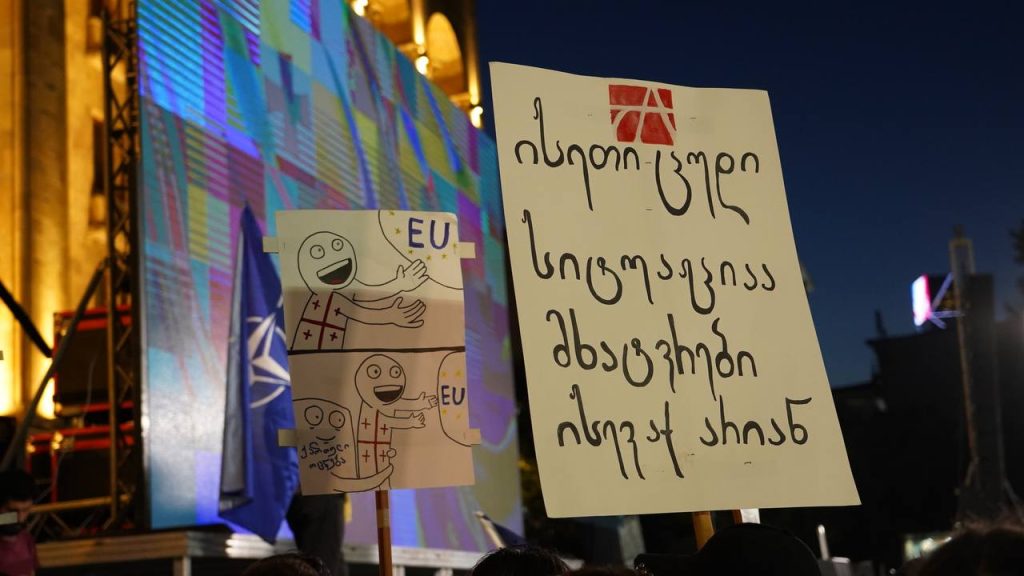 EU
EU
ქართული
ოცნება
ისეთი ცუდი
სიტუაციაა
მხატვრები
ისევაქ არიან